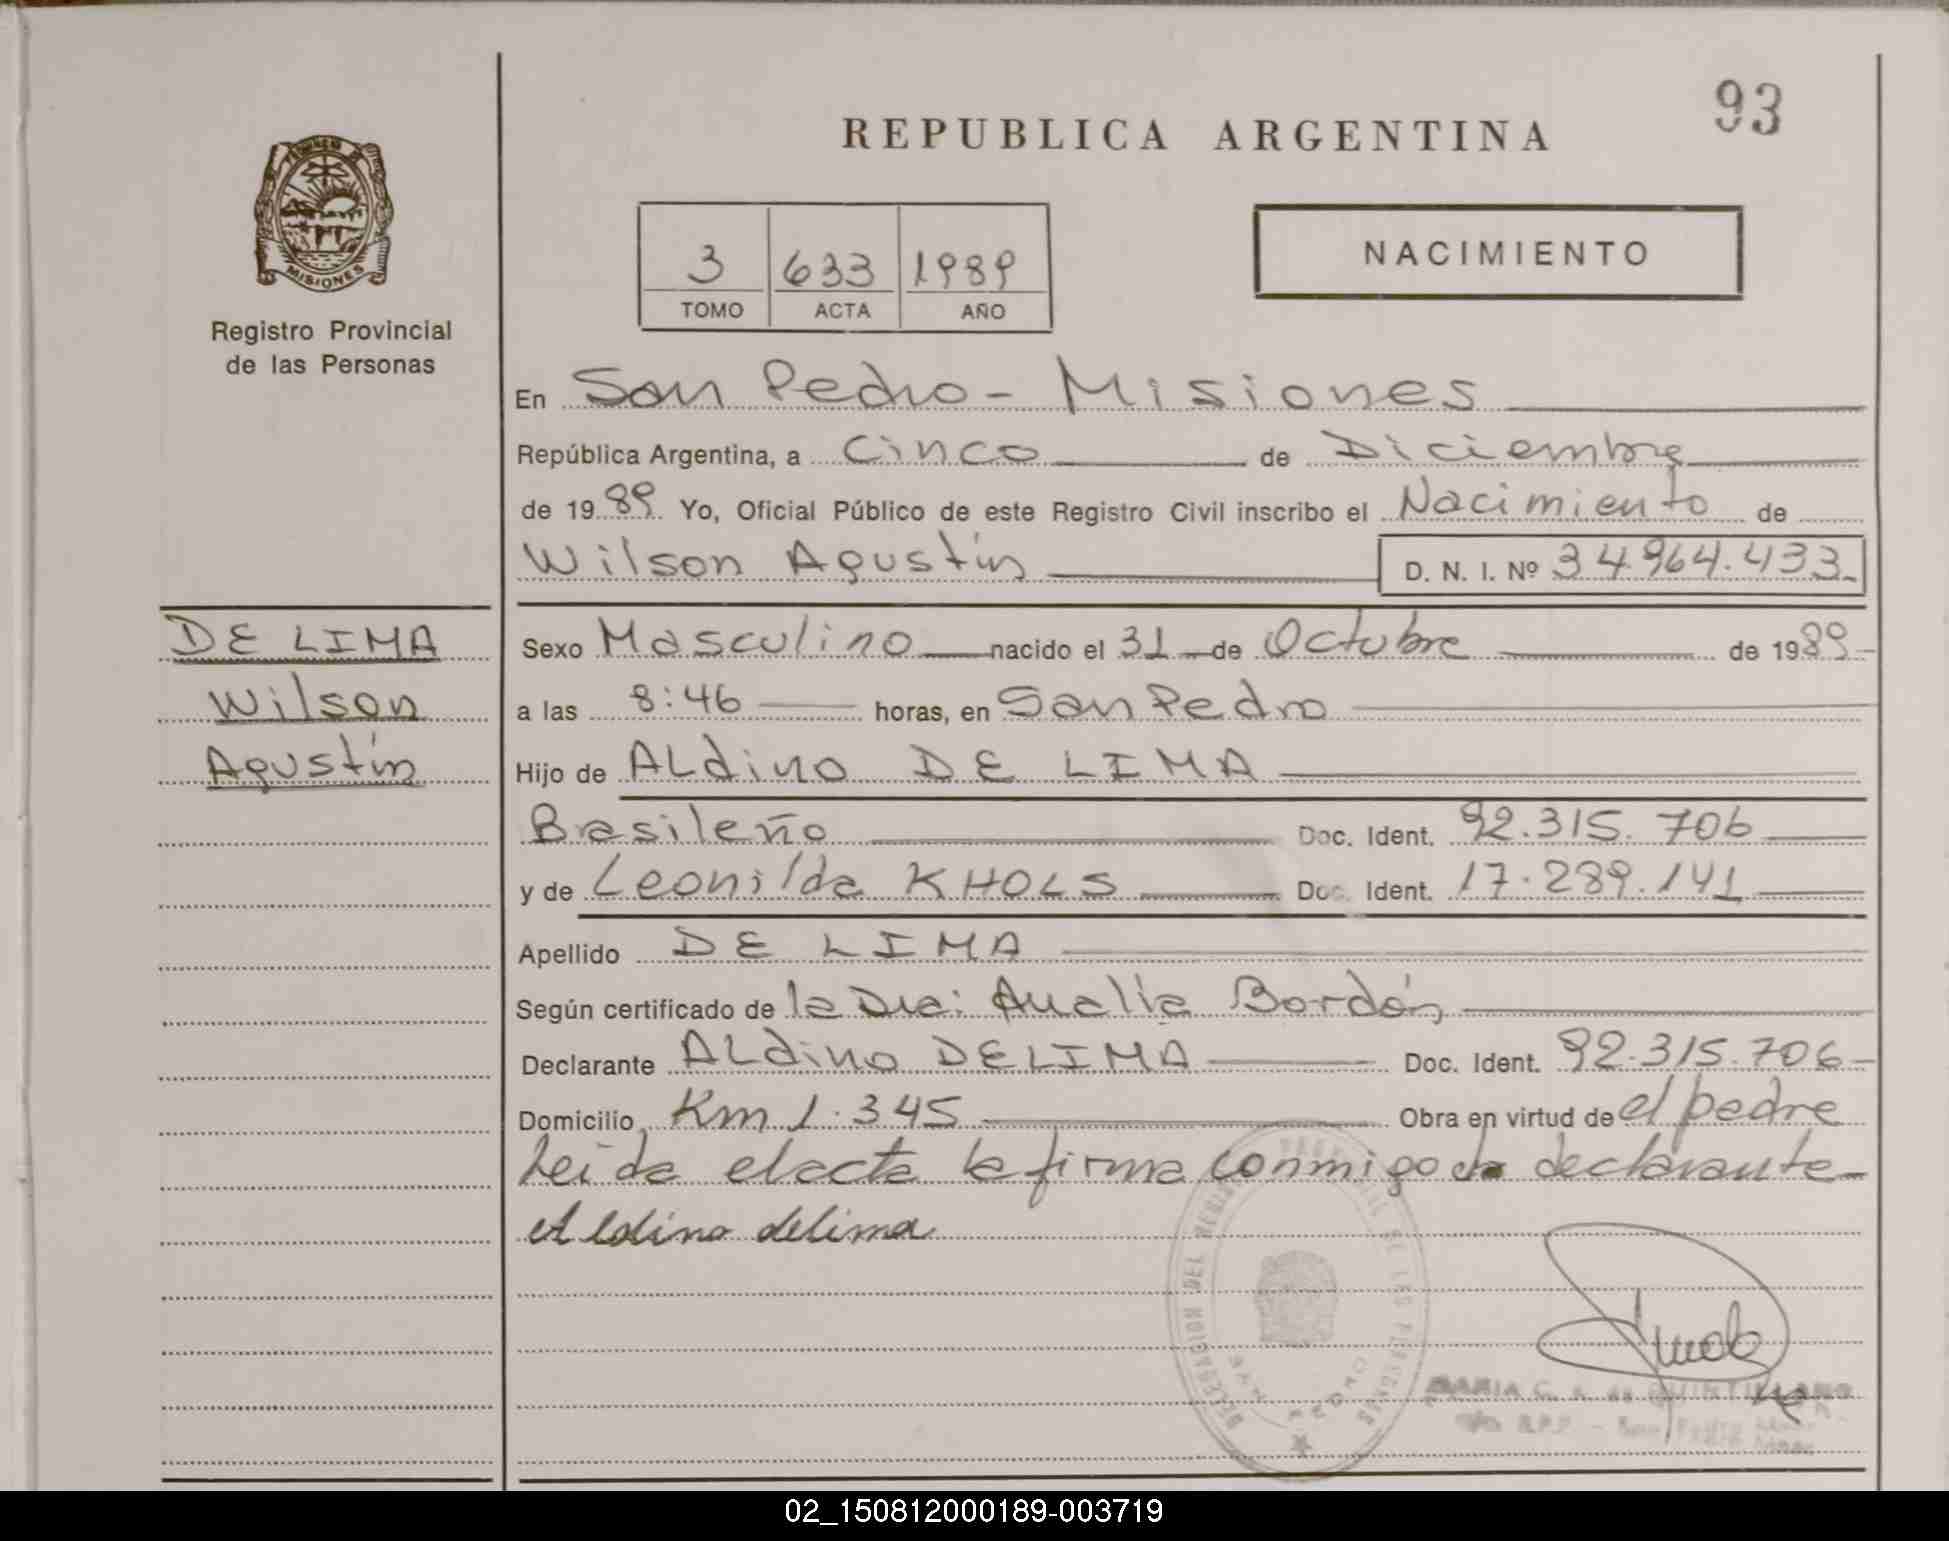 93
REPUBLICA ARGENTINA
MISIONES
Registro Provincial
de las Personas
3 633 1989
TOMO ACTA AÑO
NACIMIENTO
En San Pedro - Misiones
República Argentina, a Cinco de Diciembre
de 1989 Yo, Oficial Público de este Registro Civil inscribo el Nacimiento de
Wilson Agustín D. N. I. Nº 34.964.433
DE LIMA
Wilson
Agustín
Sexo Masculino nacido el 31 de Octubre de 1989
a las 8:46 horas, en San Pedro
Hijo de ALdino DE LIMA
Brasileño Doc. Ident. 92.315.706
y de Leonilda KHOLS Doc. Ident. 17.289.141
Apellido DE LIMA
Según certificado de la Dra: Analía Bordón
Declarante ALdino DE LIMA Doc. Ident. 92.315.706
Domicilio Km 1.345 Obra en virtud de el padre
Leida el acta la firma conmigo declarante
Aldino delima
DELEGACION DEL REGISTRO PROVINCIAL DE LAS PERSONAS
SAN PEDRO
MARIA C. de QUINTILLANO
R.P.P. - San Pedro
02_150812000189-003719